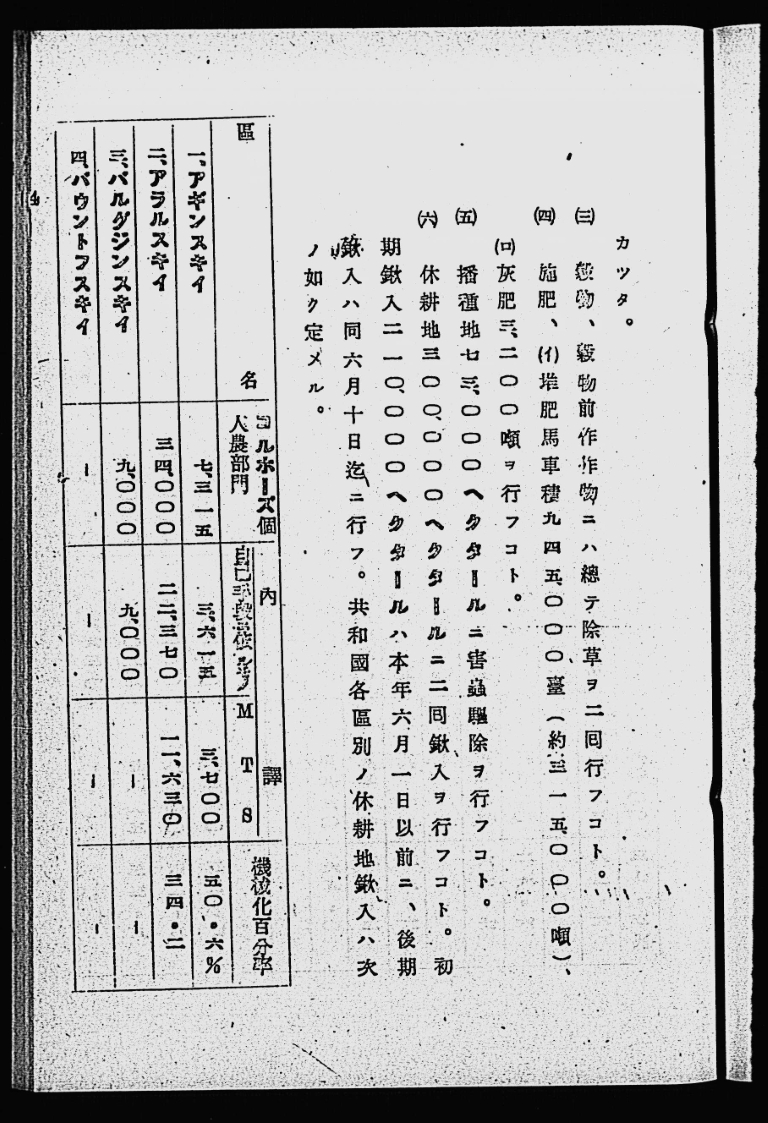 カツタ。
㈢ 穀物、穀物前作作物ニハ總テ除草ヲ二囘行フコト。
㈣ 施肥、(イ)堆肥馬車積九四五、〇〇〇臺(約三一五、〇〇〇噸)、
(ロ)灰肥三、二〇〇噸ヲ行フコト。
㈤ 播種地七三、〇〇〇ヘクタールニ害蟲驅除ヲ行フコト。
㈥ 休耕地三〇〇、〇〇〇ヘクタールニ二囘鍬入ヲ行フコト。初
期鍬入二一〇、〇〇〇ヘクタールハ本年六月一日以前ニ、後期
鍬入ハ同六月十日迄ニ行フ。共和國各區別ノ休耕地鍬入ハ次
ノ如ク定メル。
區名 コルホーズ個人農部門 內譯 自己手段 MTS 機械化百分率
一、アギンスキイ 七、三一五 三、六一五 三、七〇〇 五〇・六%
二、アラルスキイ 三四、〇〇〇 二二、三七〇 一一、六三〇 三四・二
三、バルグジンスキイ 九、〇〇〇 九、〇〇〇 ー ー
四、バウントフスキイ ー ー ー ー